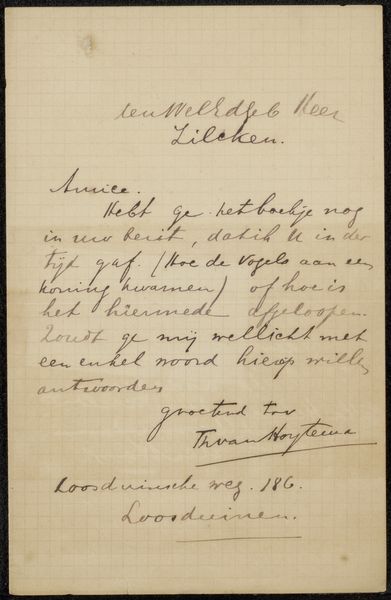 den WelEdgeb Heer
Zilcken.
Amice.
Hebt ge het boekje nog
in uw bezit, dat ik U in der
tijd gaf. (Hoe de Vogels aan een
koning kwamen) of hoe is
het hiermede afgeloopen.
Zoudt ge mij wellicht met
een enkel woord hierop willen
antwoorden
groetend
Th van Hoytema
Loosduinsche weg. 186.
Loosduinen.